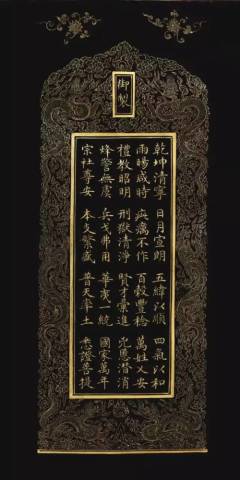 御製
乾坤清寧 日月宣朗 五緯以順 四氣以和
雨暘咸時 疾癘不作 百穀豐稔 萬姓乂安
禮教昭明 刑獄清淨 賢才彙進 兇慝潛消
烽警無虞 兵戈弗用 華夷一統 國家萬年
宗社奠安 本支繁盛 普天率土 悉證菩提